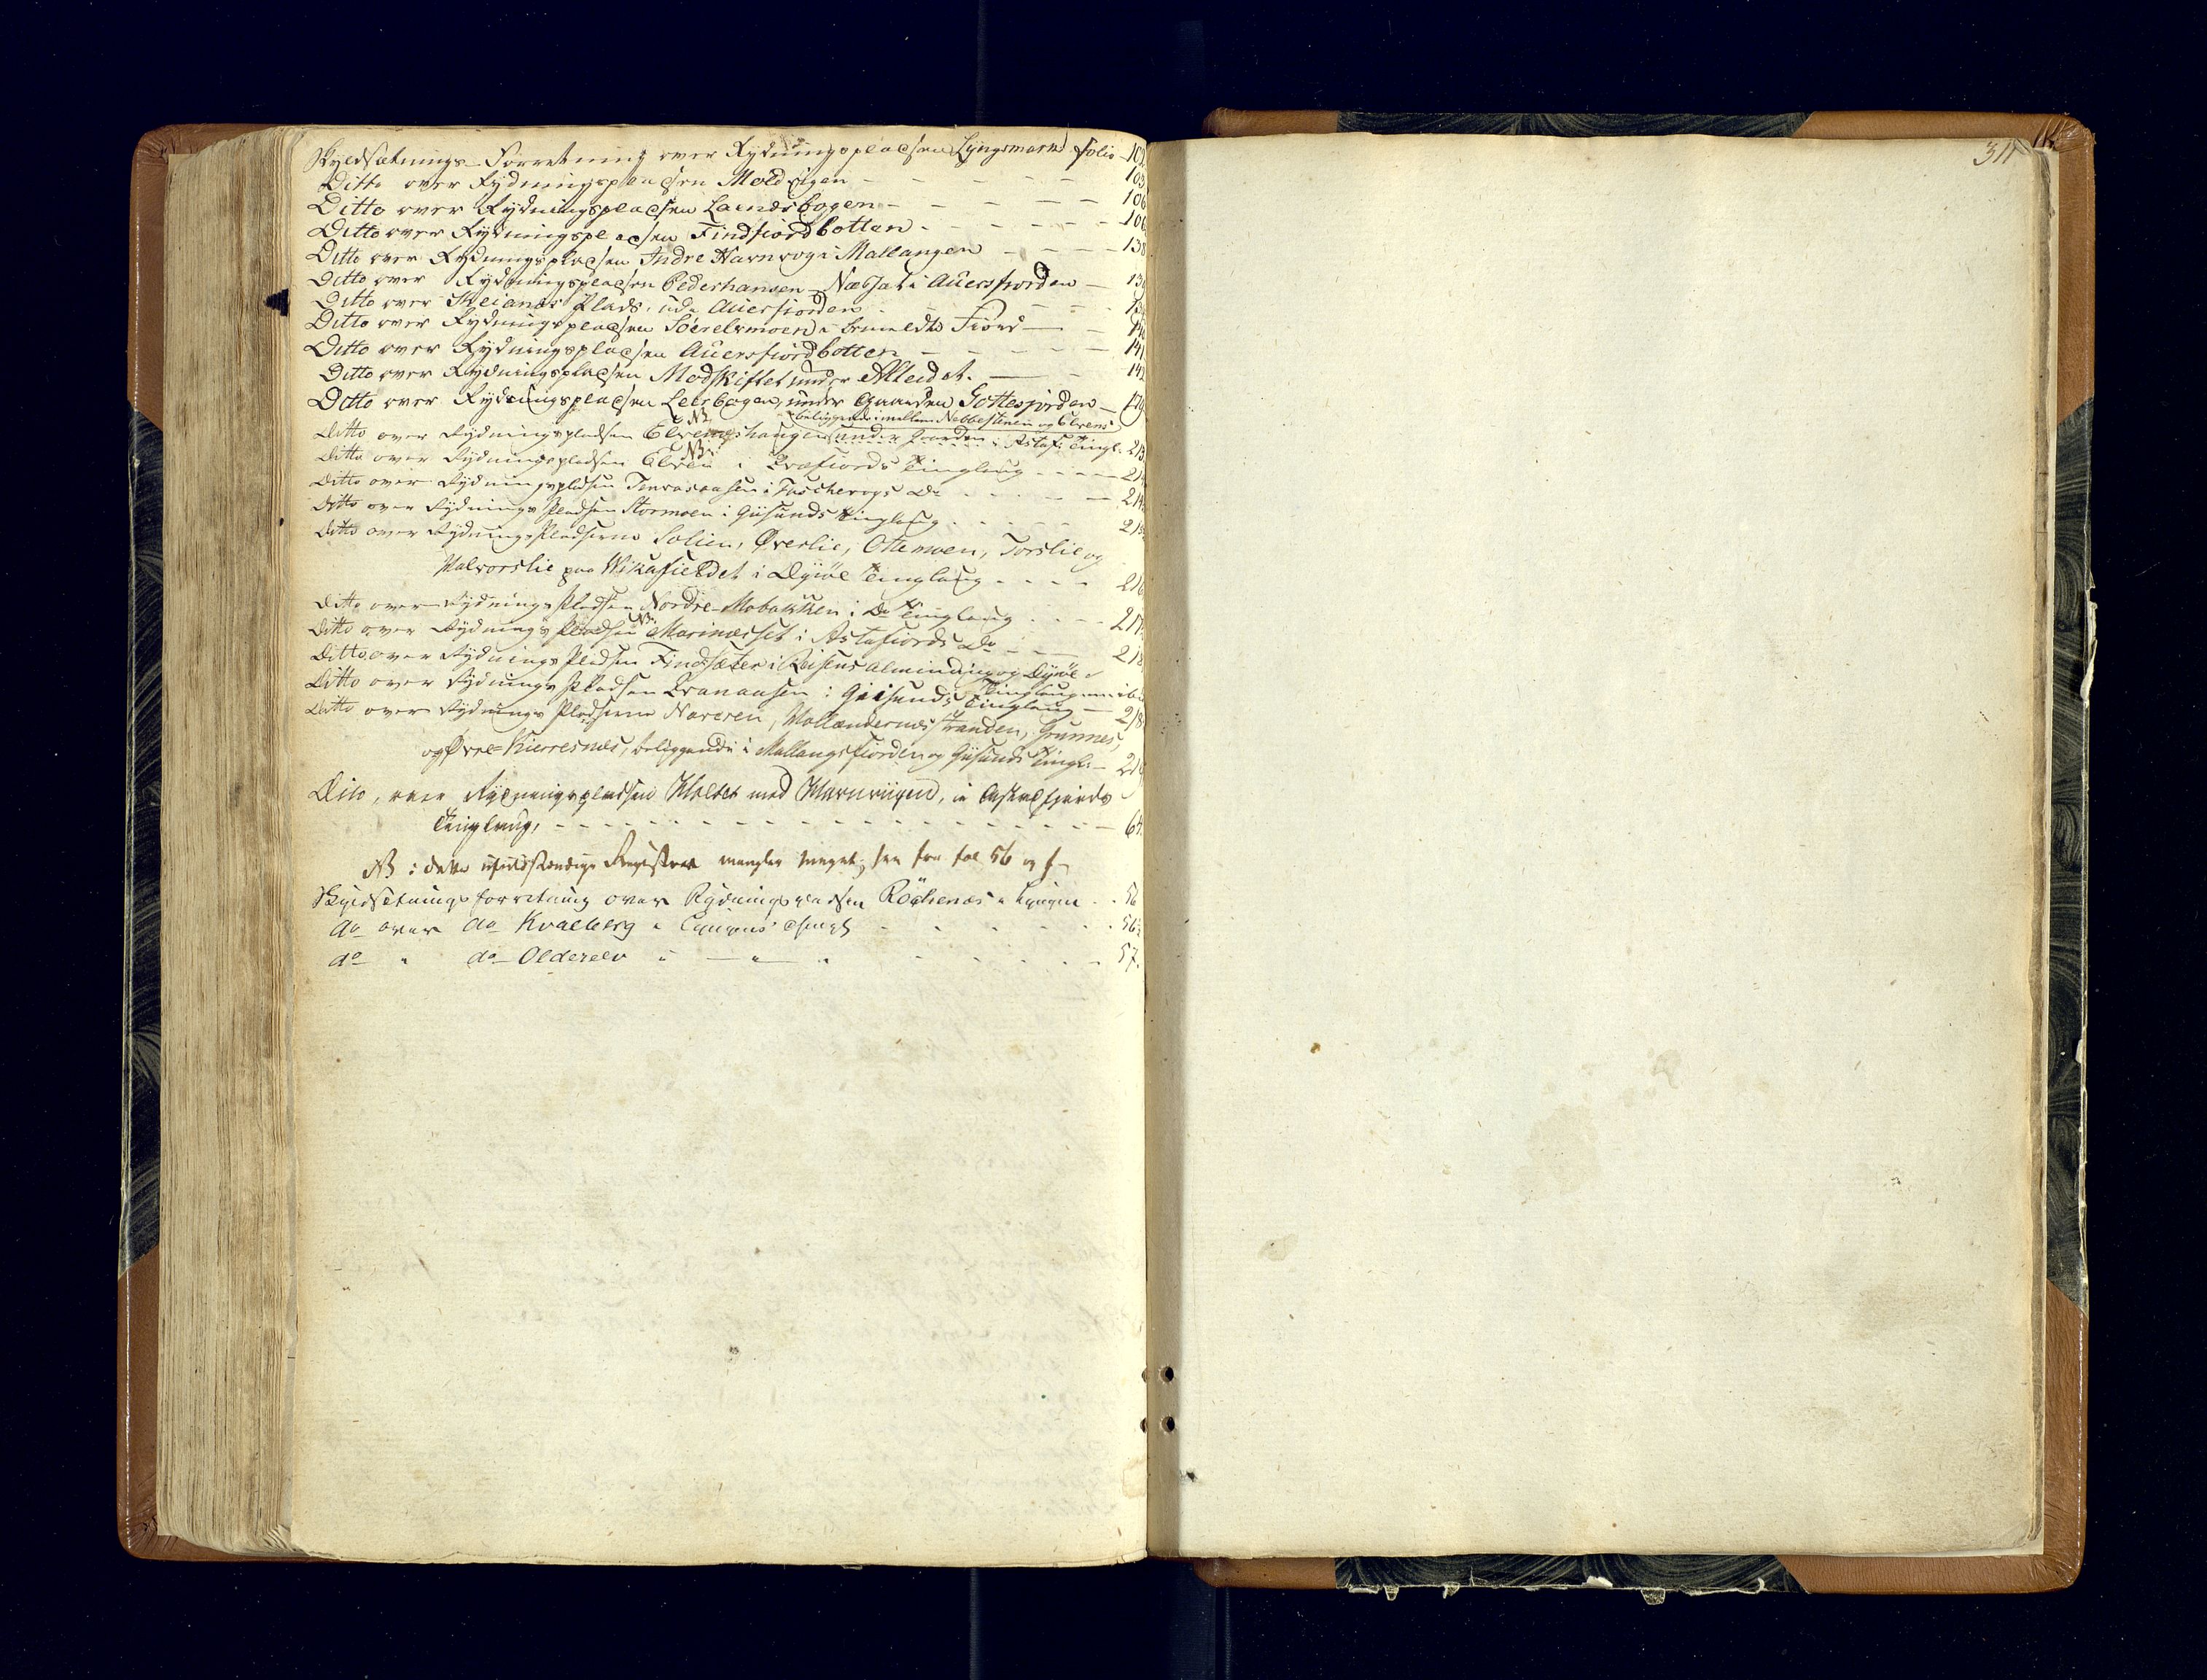 Skyldsætnings-Forretning over Rydningspladsen Lyngsmark folio 102
Ditto over Rydningspladsen Moldvigen 103
Ditto over Rydningspladsen Laendsbogen 106
Ditto over Rydningspladsen Findfiordbotten 106
Ditto over Rydningspladsen Indre Navnvog i Mallangen 138
Ditto over Rydningspladsen Pederhansen Næsset i Auersfiorden 13
Ditto over Plads, ud i Auersfiorden
Ditto over Rydningspladsen Sørelvmoen i bemeldte Fiord
Ditto over Rydningspladsen Auersfiordbotten 141
Ditto over Rydningspladsen Modskiftet under Alleidet. 142
Ditto over Rydningspladsen Leirbogen, under Gaarden Gottesjorden 179
beliggende imellem Nebbesteinen og Elvens
Ditto over Rydningspladsen Elveneshaugen under Gaarden i Astaf: Tingl. 213
NB
Ditto over Rydningspladsen Elven i Qvæfiords Tinglaug 21
NB.
Ditto over Rydningspladsen i Do 214
Ditto over Rydnings Pladsen Stormoen i Giisunds Tinglaug 215
Ditto over Rydnings Pladserne Solien, Øverlie, Ottemoen, Torslie og
Halvorslie paa Wikafieldet i Dyrøe Tinglaug 216
Ditto over Rydnings Pladsen Nordre-Mobakken i Do Tinglaug 217
Ditto over Rydnings Pladsen Marinæsset i Astafiords Do 218
NB.
Ditto over Rydnings Pladsen Findsæter i Reisens Alminding og Dyrøe
Tinglaug
Ditto over Rydnings Pladsen Granaasen i Giisunds Tinglaug 218
Ditto over Rydnings Pladserne Naveren, Hollændernæs Stranden, Grunnes,
og Øvre-Kierresnæs, beliggende i Mallangsfiorden og Giisunds Tingl. 21
Dito, over Rydningspladsen Holtet med Havnviigen, i Astafjords
Tinglaug, 64
NB i dette ufuldstændige Register mangler meget, see fra fol 56 og f
Skyldsetningsforretning over Rydningspladsen Röykenæs i Lyngen 56
do over do Kvalberg i Lyngens Thingl 56
do " do Olderelv " — " " 57.
311